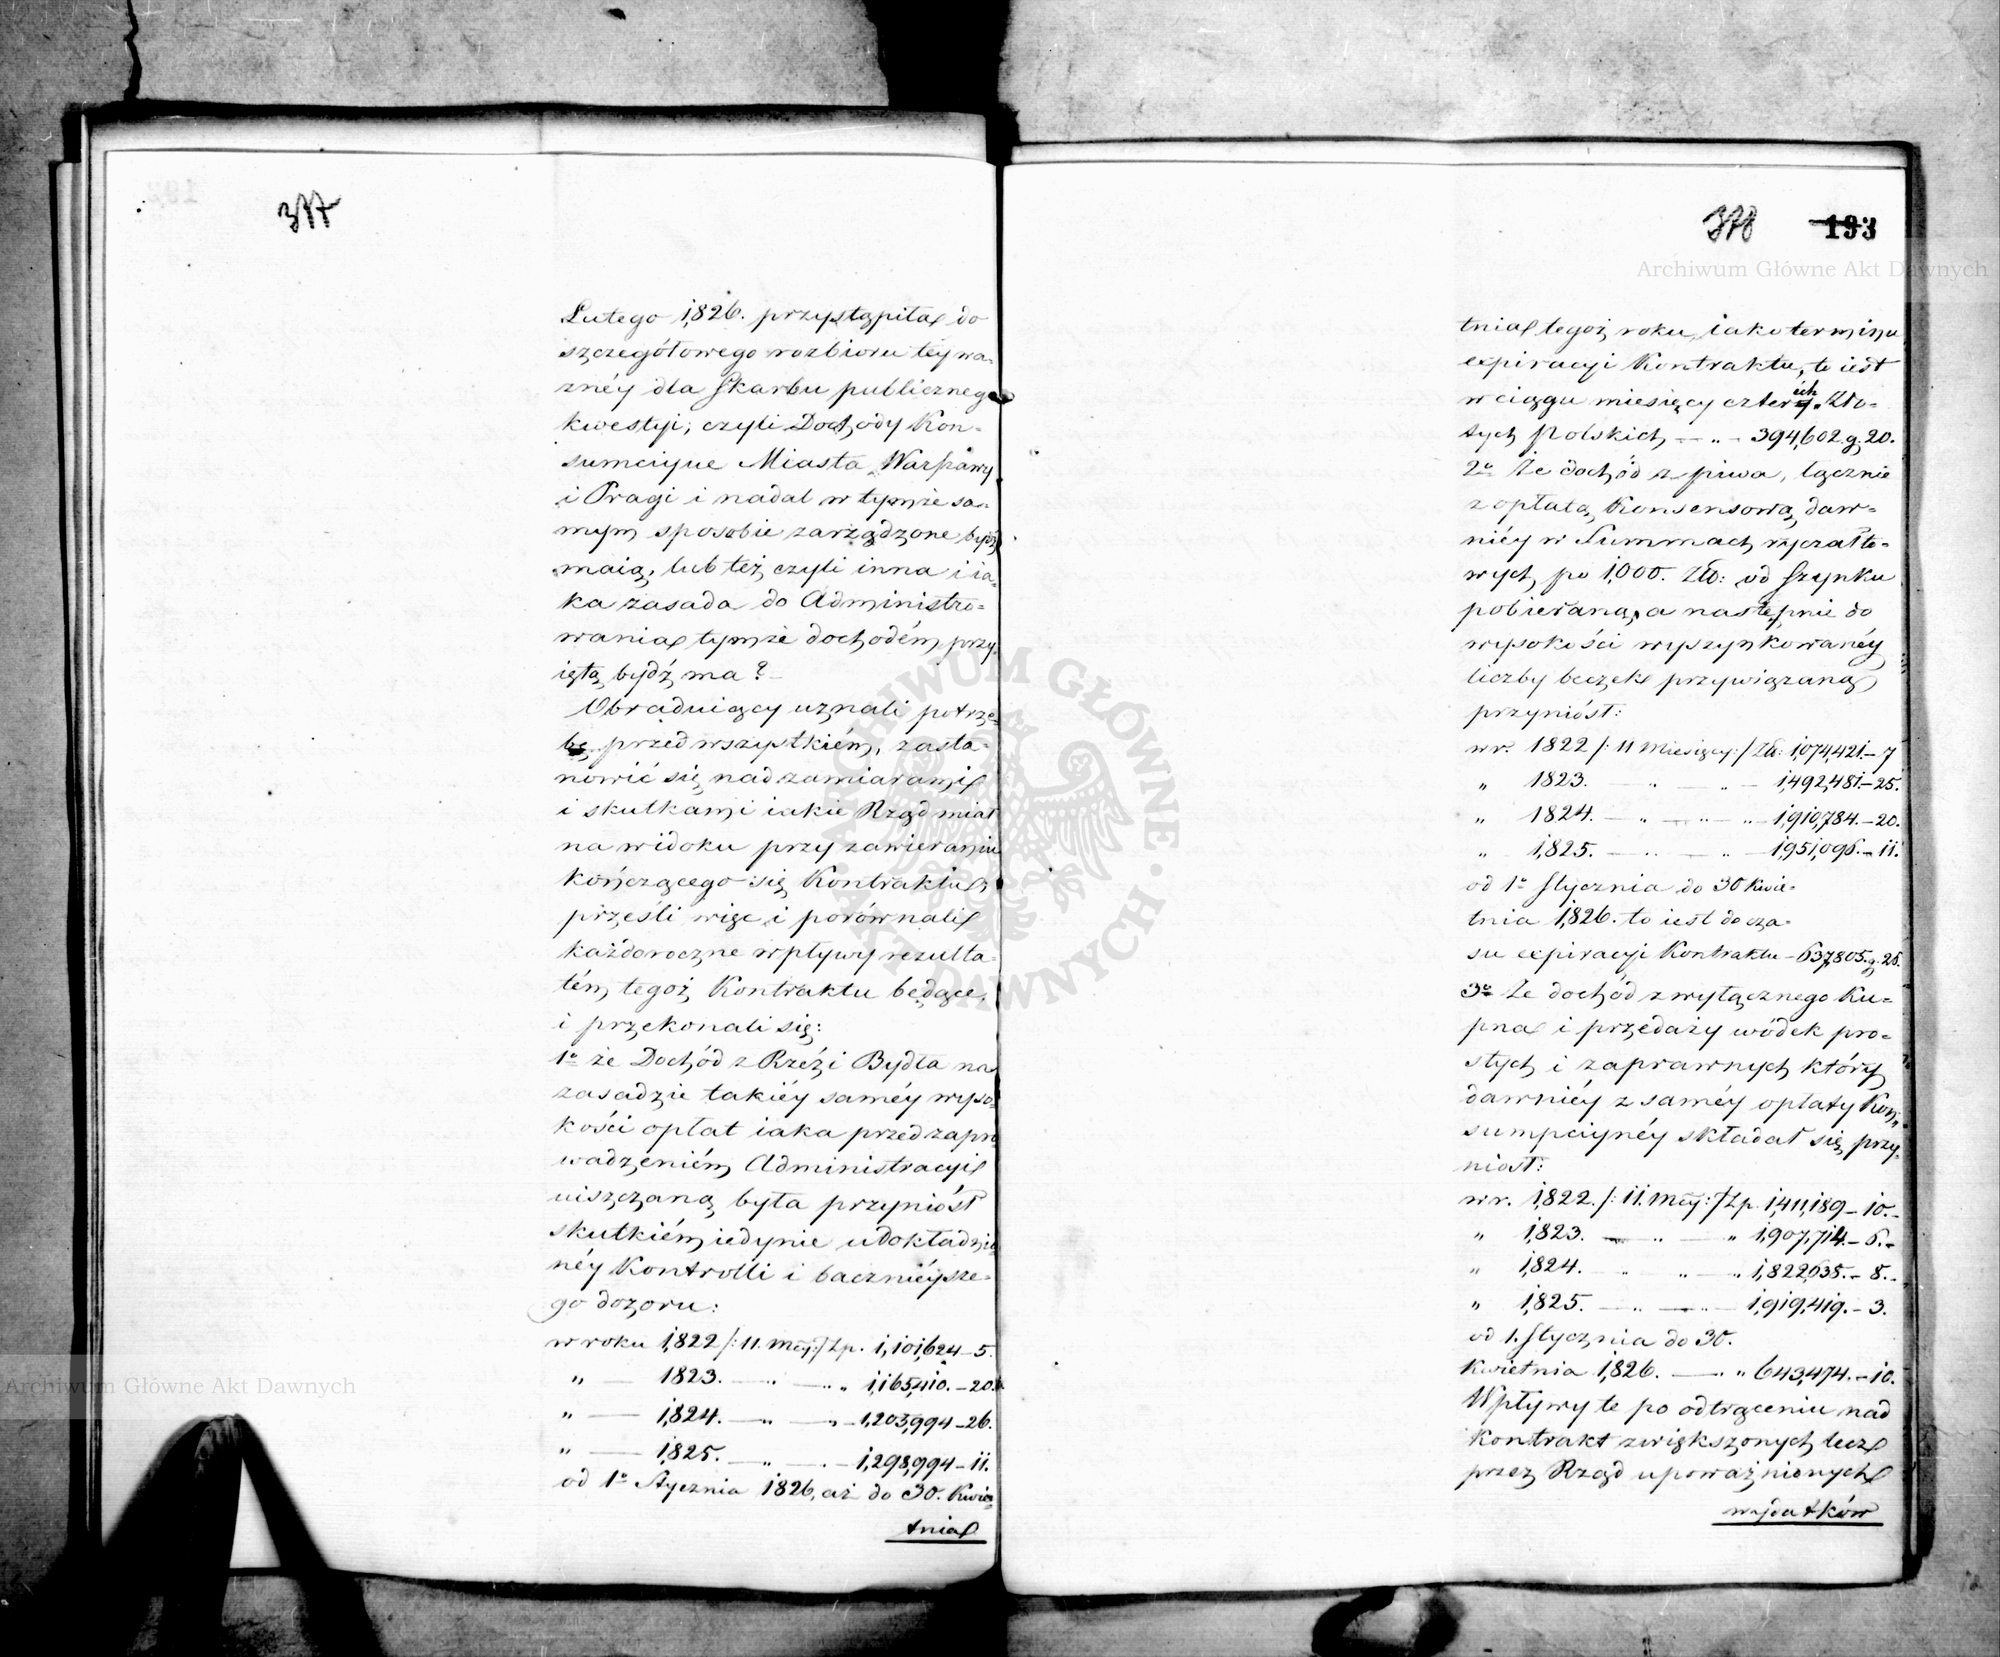 377
Lutego 1826. przystąpiła do
szczegółowego rozbioru téy wa-
żnéy dla Skarbu publicznego
kwestyi; czyli Dochody Kon-
sumcyjne Miasta Warszawy
i Pragi i nadal w tymże sa-
mym sposobie zarządzone bydź
maią, lub też czyli inna i ia-
ka zasada do Administro-
wania tymże dochodém przy-
iętą bydź ma?
Obraduiący uznali potrze-
bę przedwszystkiém, zasta-
nowić się nad zamiarami
i skutkami iakie Rząd miał
na widoku przy zawieraniu
kończącego się Kontraktu,
prześli więc i porównali
każdoroczne wpływy rezulta-
tém tegoż Kontraktu będące,
i przekonali się:
1o że Dochód z Rzézi Bydła na
zasadzie takiéy saméy wyso-
kości opłat iaka przed zapro-
wadzeniém Administracyi
uiszczaną była przyniósł
skutkiém iedynie udokładnio-
néy Kontrolli i bacznieysze-
go dozoru:
w roku 1822 /: 11. mcy:/ Zp. 1,101,624 - 5.
" — 1823. — " — " 1,165,410. - 20.
" — 1,824. — " — " - 1,203,994 - 26.
" — 1,825. — " — - 1,298,994 - 11.
od 1o Stycznia 1826, aż do 30. Kwie-
tnia
378 193
tnia tegoż roku, iako terminu
expiracyi Kontraktu, to iest
w ciągu miesięcy czterech Zło-
tych Polskich — " — 394,602 g. 20.
2o Że dochód z piwa, łącznie
z opłatą Konsensową daw-
niéy w Summach ryczałto-
wych po 1,000. Zło: od Szynku
pobieraną, a następnie do
wysokości wyszynkowanéy
liczby beczek przywiązaną
przyniósł:
w r. 1822 /: 11 Miesięcy:/ Zł: 1,074,421. - 7
" 1823. — " — " — 1,492,481. - 25.
" 1824. — " — " — 1,910,784. - 20.
" 1,825. — " — " — 1,951,096. - 11.
od 1o Stycznia do 30 Kwie-
tnia 1,826. to iest do cza-
su expiracyi Kontraktu - 637,805. g. 25.
3o Że dochód z wyłącznego Ku-
pna i przedaży wódek pro-
stych i zaprawnych który
dawniéy z saméy opłaty Kon-
sumpcyinéy składał się, przy-
niósł:
w r. 1,822. /: 11. mcy:/ Zp. 1,411,189 - 10. -
" 1,823. — " — " 1,907,714. - 6. -
" 1,824. — " — " 1,822,635. - 8. -
" 1,825. — " — 1,919,419. - 3.
od 1. Stycznia do 30.
Kwietnia 1,826. — " 643,474. - 10.
Wpływy te po odtrąceniu nad
kontrakt zwiększonych lecz
przez Rząd upoważnionych
wydatków
Archiwum Główne Akt Dawnych
Archiwum Główne Akt Dawnych
ARCHIWUM GŁÓWNE AKT DAWNYCH